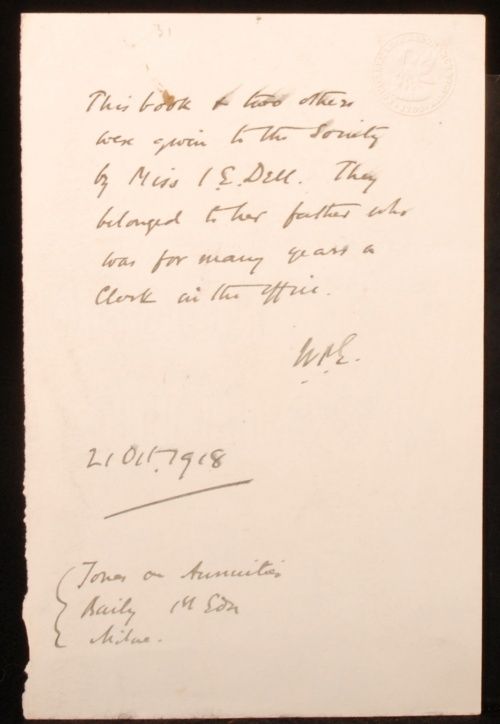 31
This book & two others
were given to the Society
by Miss I. E. Dell. They
belonged to her father who
was for many years a
Clerk in the office.
21 Oct. 1918
Jones on Annuities
Baily 1st Edn
Milne.